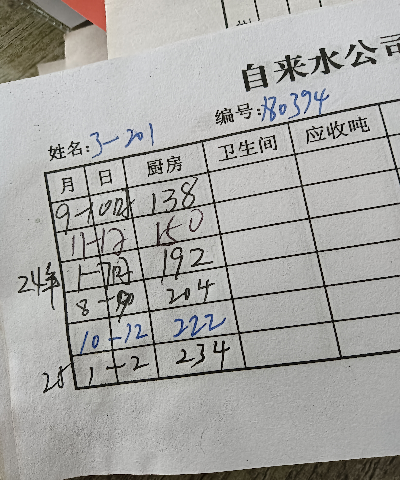 自来水公司
编号:180394
姓名:3-201
月 日 厨房 卫生间 应收吨
9-10月 138
11-12 150
24年 1-7月 192
8-9 204
10-12 222
25 1-2 234